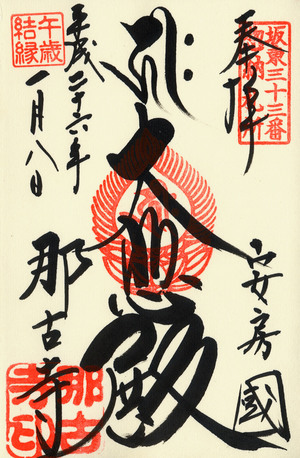 坂東三十三番
惣納札所
奉拝
安房國
大悲殿
午歳
結縁
平成二十六年
一月八日
那古寺
那古
寺印